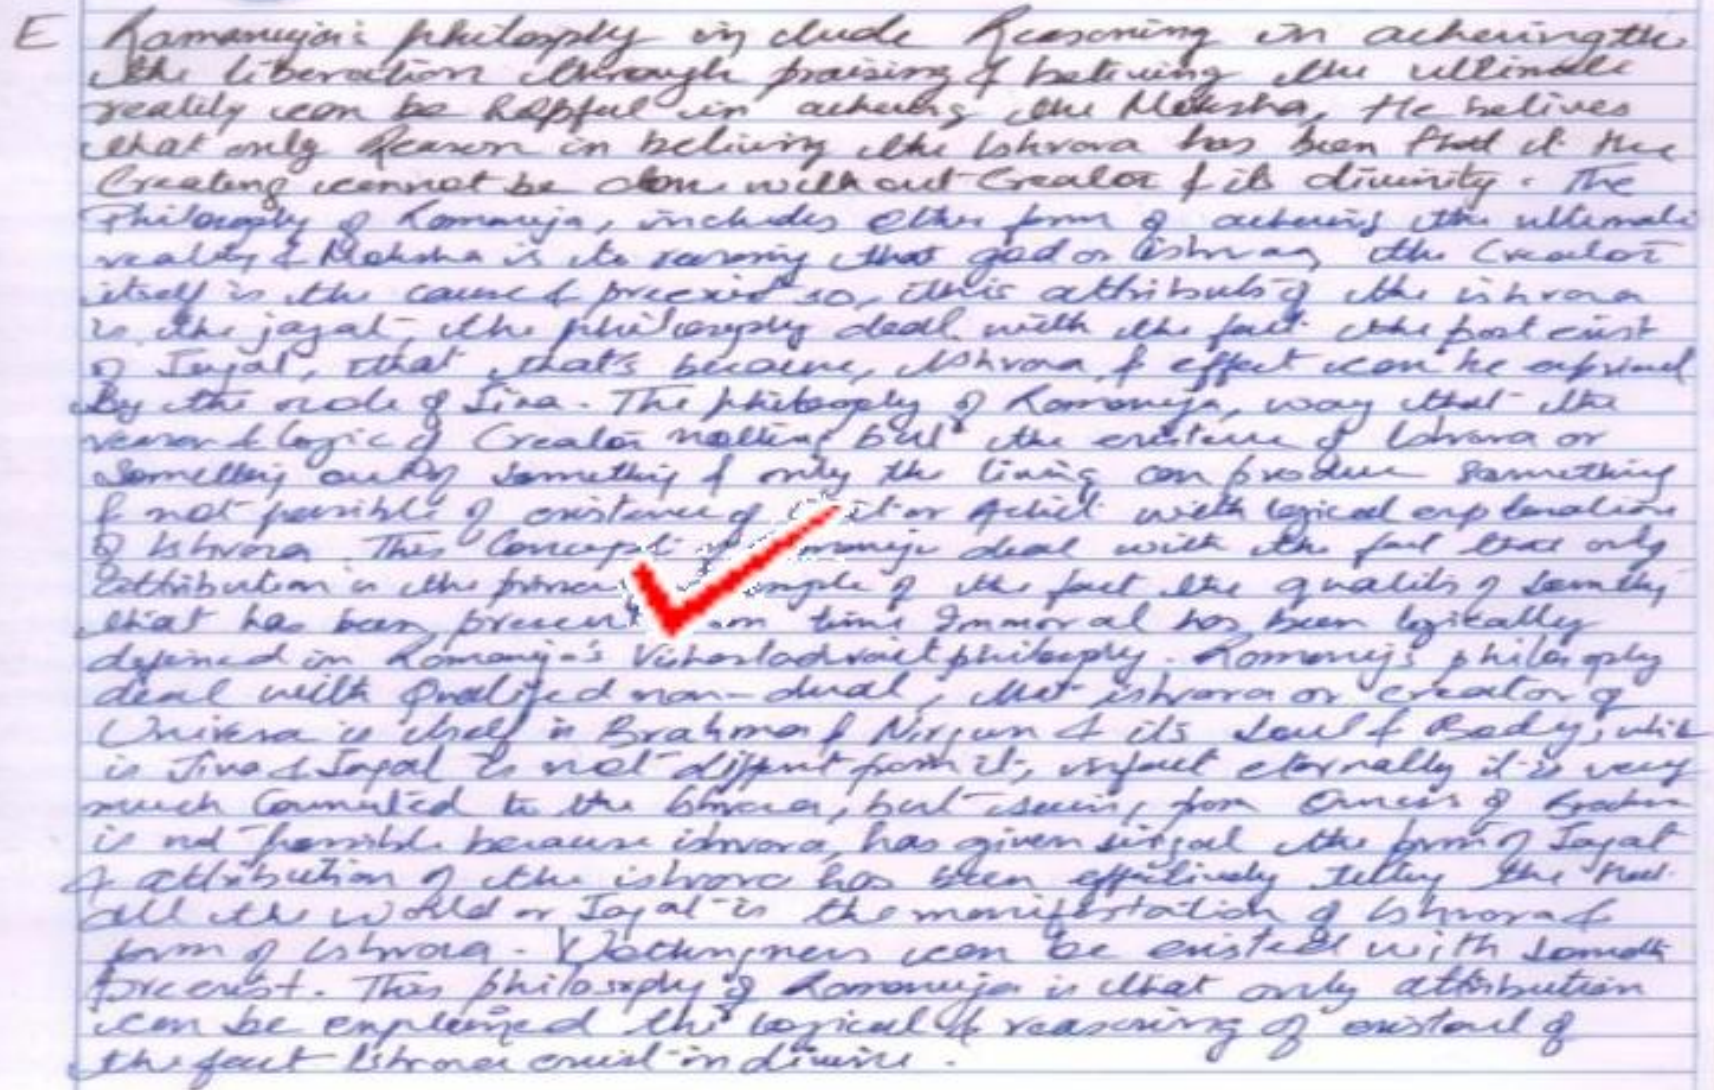 E Ramanuja's philosophy include Reasoning in acheiving the
the liberation through praising & beliving the ultimate
reality can be helpful in acheing the Moksha, He belives
that only Reason in beliving the Ishvora has been that if the
Creating cannot be done without Creator & its divinity. The
Philosophy of Ramanuja, includes other form of acheing the ultimate
reality & Moksha is its resoning that god or Ishvaa, the Creator
itself is the cause & preexist so, this attributs of the ishvora
is the jagat, the philosophy deal with the fact the post exist
of Jagat, that that's because, Ishvora & effect can be
By the role of Jiva. The philosophy of Ramanuja, way that the
reason & logic of Creator nothing but the existence of Ishvora or
Something out of something & only the living can produce something
& not possible of existence of with logical explanation
of Ishvora. This Concept deal with the fact that only
attribution is the of the fact the qualits of
that has been time Immoral has been logically
defined in Ramanuja's philosophy. Ramanuj's philosophy
deal with Qualified non-dual, that ishvora or creator of
Universe is itself is Brahma & Nirgun & its Soul & Body, which
is Jiva & Jagat is not diffent from it, infact eternally it is very
much Connected to the Ishvora, but from of
is not possible because ishvora, has given the form of Jagat
& attribution of the ishvora has been effectively the that
all the world or Jagat is the manifestation of Ishvora &
form of Ishvora. Nothingness can be existed with
preexist. This philosophy of Ramanuja is that only attribution
can be explained the logical & reasoning of of
the fact Ishvora exist in divine.